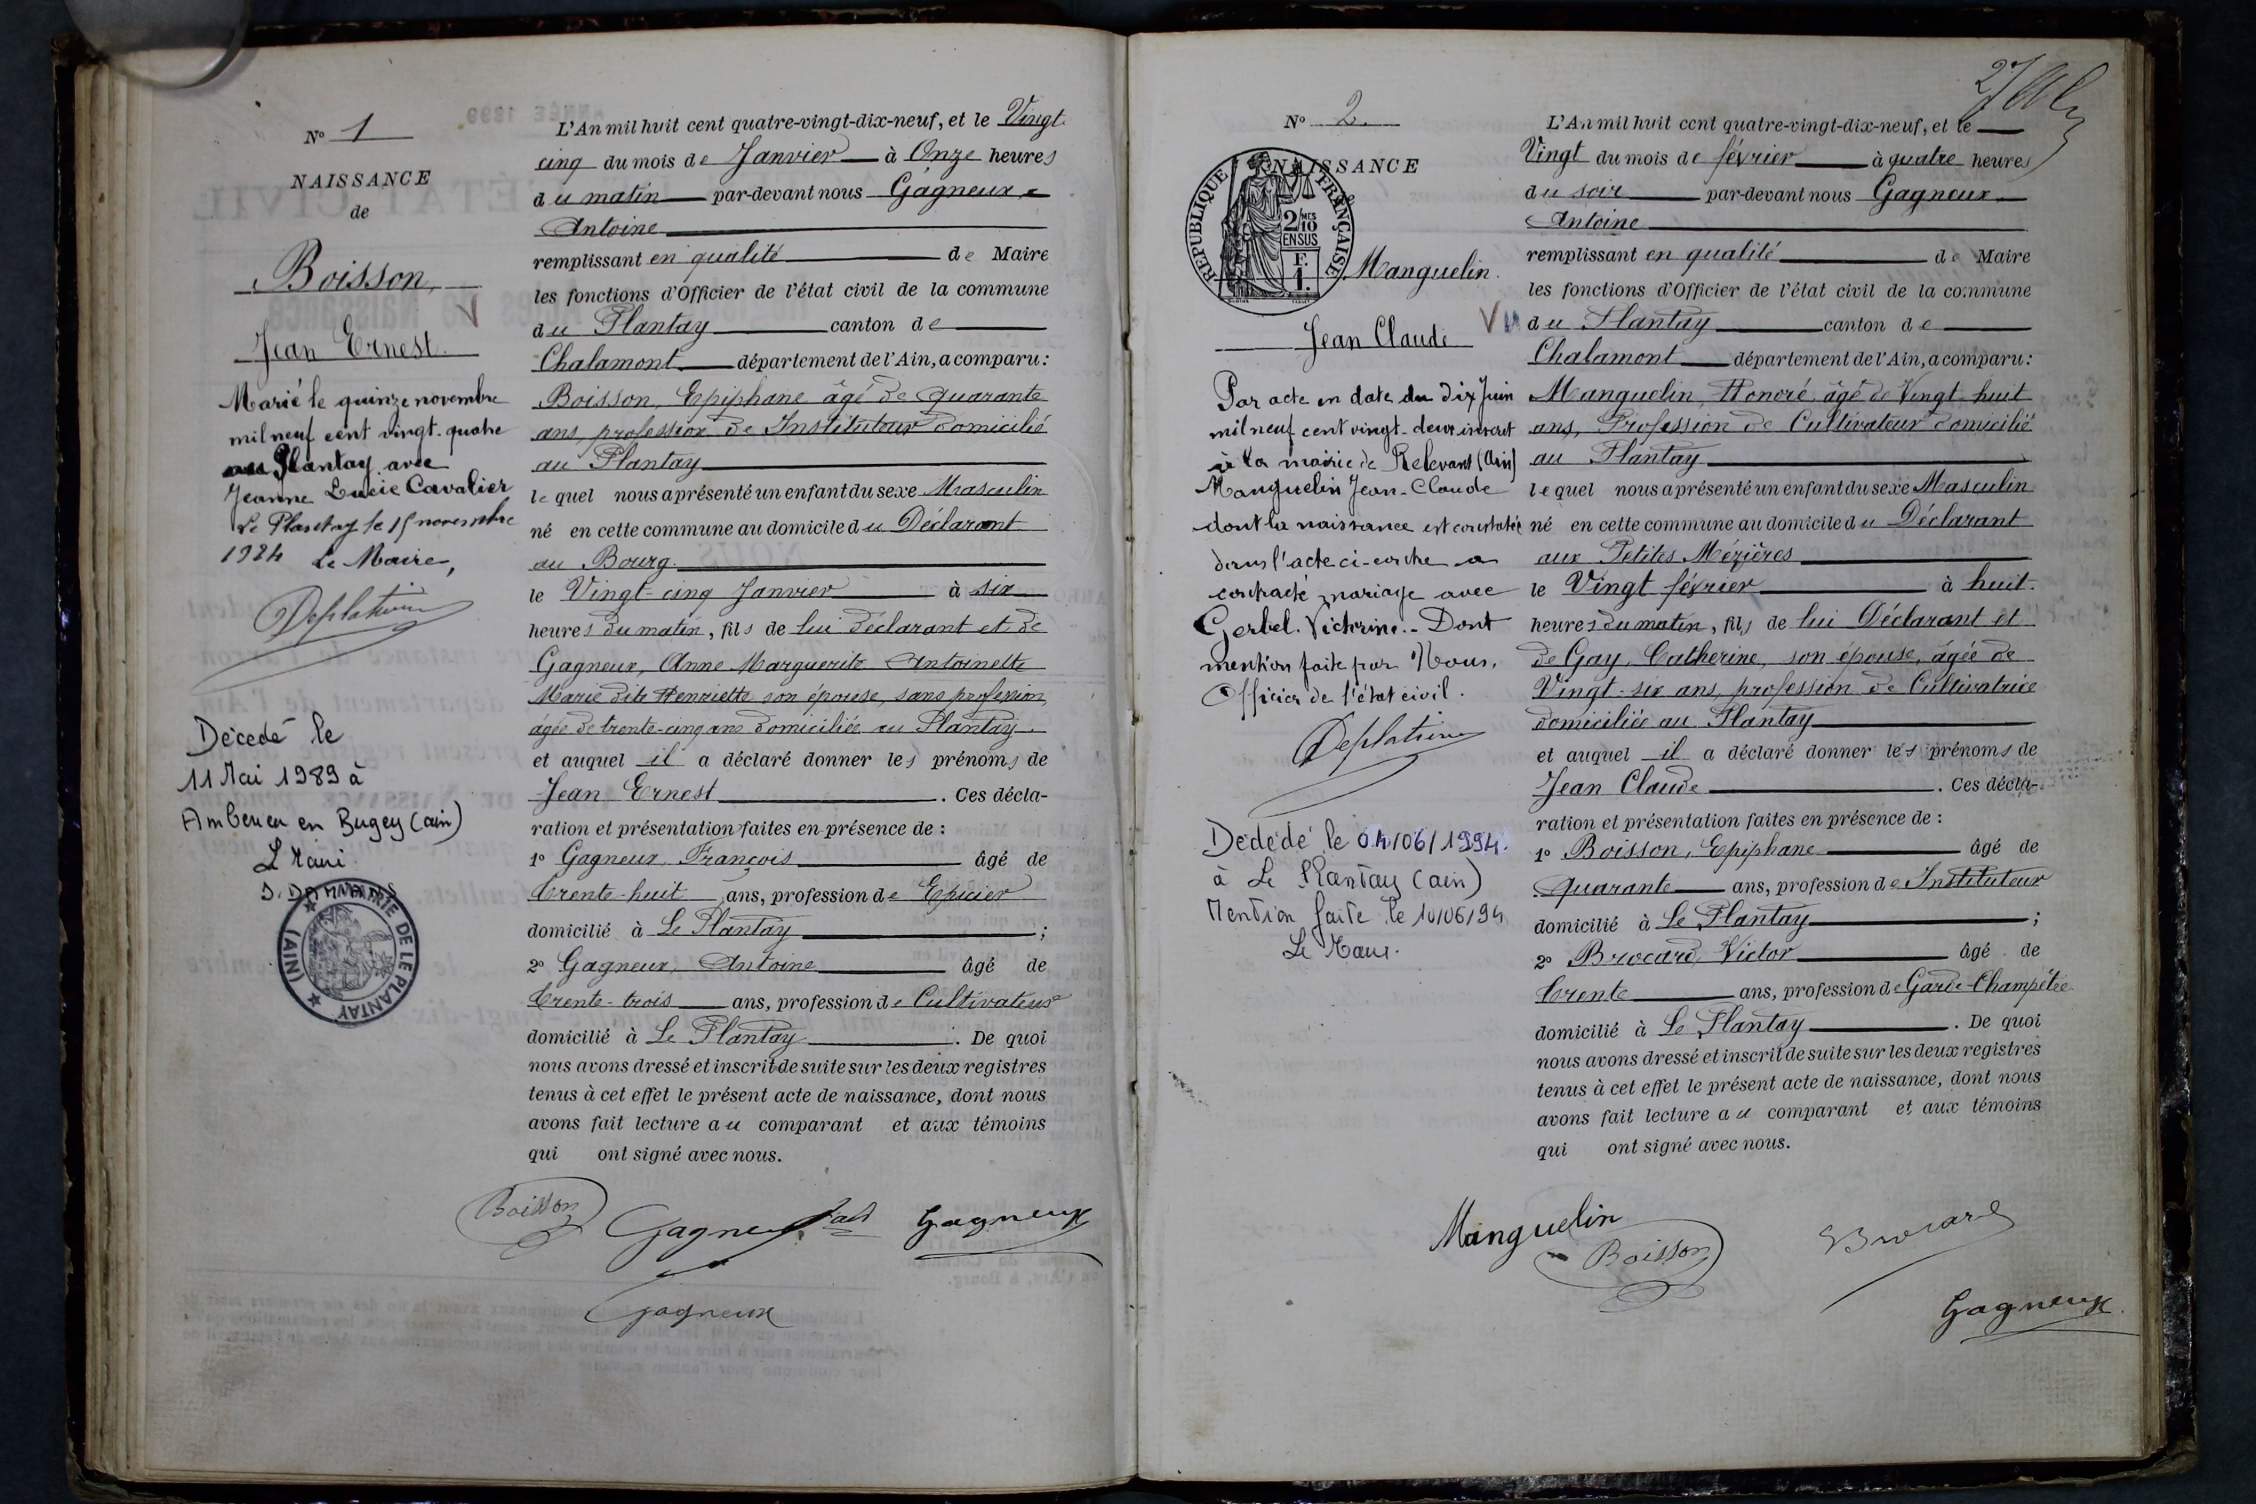 N° 1
NAISSANCE
de
Boisson,
Jean Ernest.
Marié le quinze novembre
mil neuf cent vingt-quatre
au Plantay avec
Jeanne Lucie Cavalier
Le Plantay le 15 novembre
1924 Le Maire,
Décédé le
11 Mai 1989 à
Amberieu en Bugey (ain)
L Maire
MAIRIE DE LE PLANTAY
(AIN)
L'An mil huit cent quatre-vingt-dix-neuf, et le Vingt
cinq du mois de Janvier à Onze heures
du matin par-devant nous Gagneux
Antoine
remplissant en qualité de Maire
les fonctions d'Officier de l'état civil de la commune
du Plantay canton de
Chalamont département de l'Ain, a comparu:
Boisson, Epiphane âgé de quarante
ans, profession de Instituteur domicilié
au Plantay
le quel nous a présenté un enfant du sexe Masculin
né en cette commune au domicile du Déclarant
au Bourg
le Vingt-cinq Janvier à six
heures du matin, fils de lui déclarant et de
Gagneux, Anne Marguerite Antoinette
Marie dite Henriette son épouse, sans profession
âgée de trente-cinq ans domiciliée au Plantay.
et auquel il a déclaré donner les prénoms de
Jean Ernest . Ces décla-
ration et présentation faites en présence de :
1° Gagneux François âgé de
trente-huit ans, profession de Epicier
domicilié à Le Plantay ;
2° Gagneux, Antoine âgé de
trente-trois ans, profession de Cultivateur
domicilié à Le Plantay . De quoi
nous avons dressé et inscrit de suite sur les deux registres
tenus à cet effet le présent acte de naissance, dont nous
avons fait lecture au comparant et aux témoins
qui ont signé avec nous.
Boisson Gagneux Gagneux
Gagneux
N° 2.
NAISSANCE
RÉPUBLIQUE FRANÇAISE
2/10 MES
EN SUS
F.
1.
Manguelin.
Jean Claude
Vu
Par acte en date du dix Juin
mil neuf cent vingt-deux inscrit
à la mairie de Relevant (Ain)
Manguelin Jean-Claude
dont la naissance est constatée
dans l'acte ci-contre a
contracté mariage avec
Gerbel. Victorine.- Dont
mention faite par Nous,
Officier de l'état civil.
Dédédé le 04/06/1994.
à Le Plantay (ain)
Mention faite le 10/06/94
Le Maire.
L'An mil huit cent quatre-vingt-dix-neuf, et le
Vingt du mois de février à quatre heures
du soir par-devant nous Gagneux
Antoine
remplissant en qualité de Maire
les fonctions d'Officier de l'état civil de la commune
du Plantay canton de
Chalamont département de l'Ain, a comparu:
Manguelin, Honoré âgé de Vingt huit
ans, Profession de Cultivateur domicilié
au Plantay
le quel nous a présenté un enfant du sexe Masculin
né en cette commune au domicile du Déclarant
aux Petites Mézières
le Vingt février à huit
heures du matin, fils de lui Déclarant et
de Gay, Catherine, son épouse, âgée de
Vingt-six ans, profession de Cultivatrice
domiciliée au Plantay
et auquel il a déclaré donner les prénoms de
Jean Claude . Ces décla-
ration et présentation faites en présence de :
1° Boisson, Epiphane âgé de
quarante ans, profession de Instituteur
domicilié à Le Plantay ;
2° Brocard, Victor âgé de
trente ans, profession de Garde-Champêtre
domicilié à Le Plantay . De quoi
nous avons dressé et inscrit de suite sur les deux registres
tenus à cet effet le présent acte de naissance, dont nous
avons fait lecture au comparant et aux témoins
qui ont signé avec nous.
Manguelin
Boisson Brocard
Gagneux